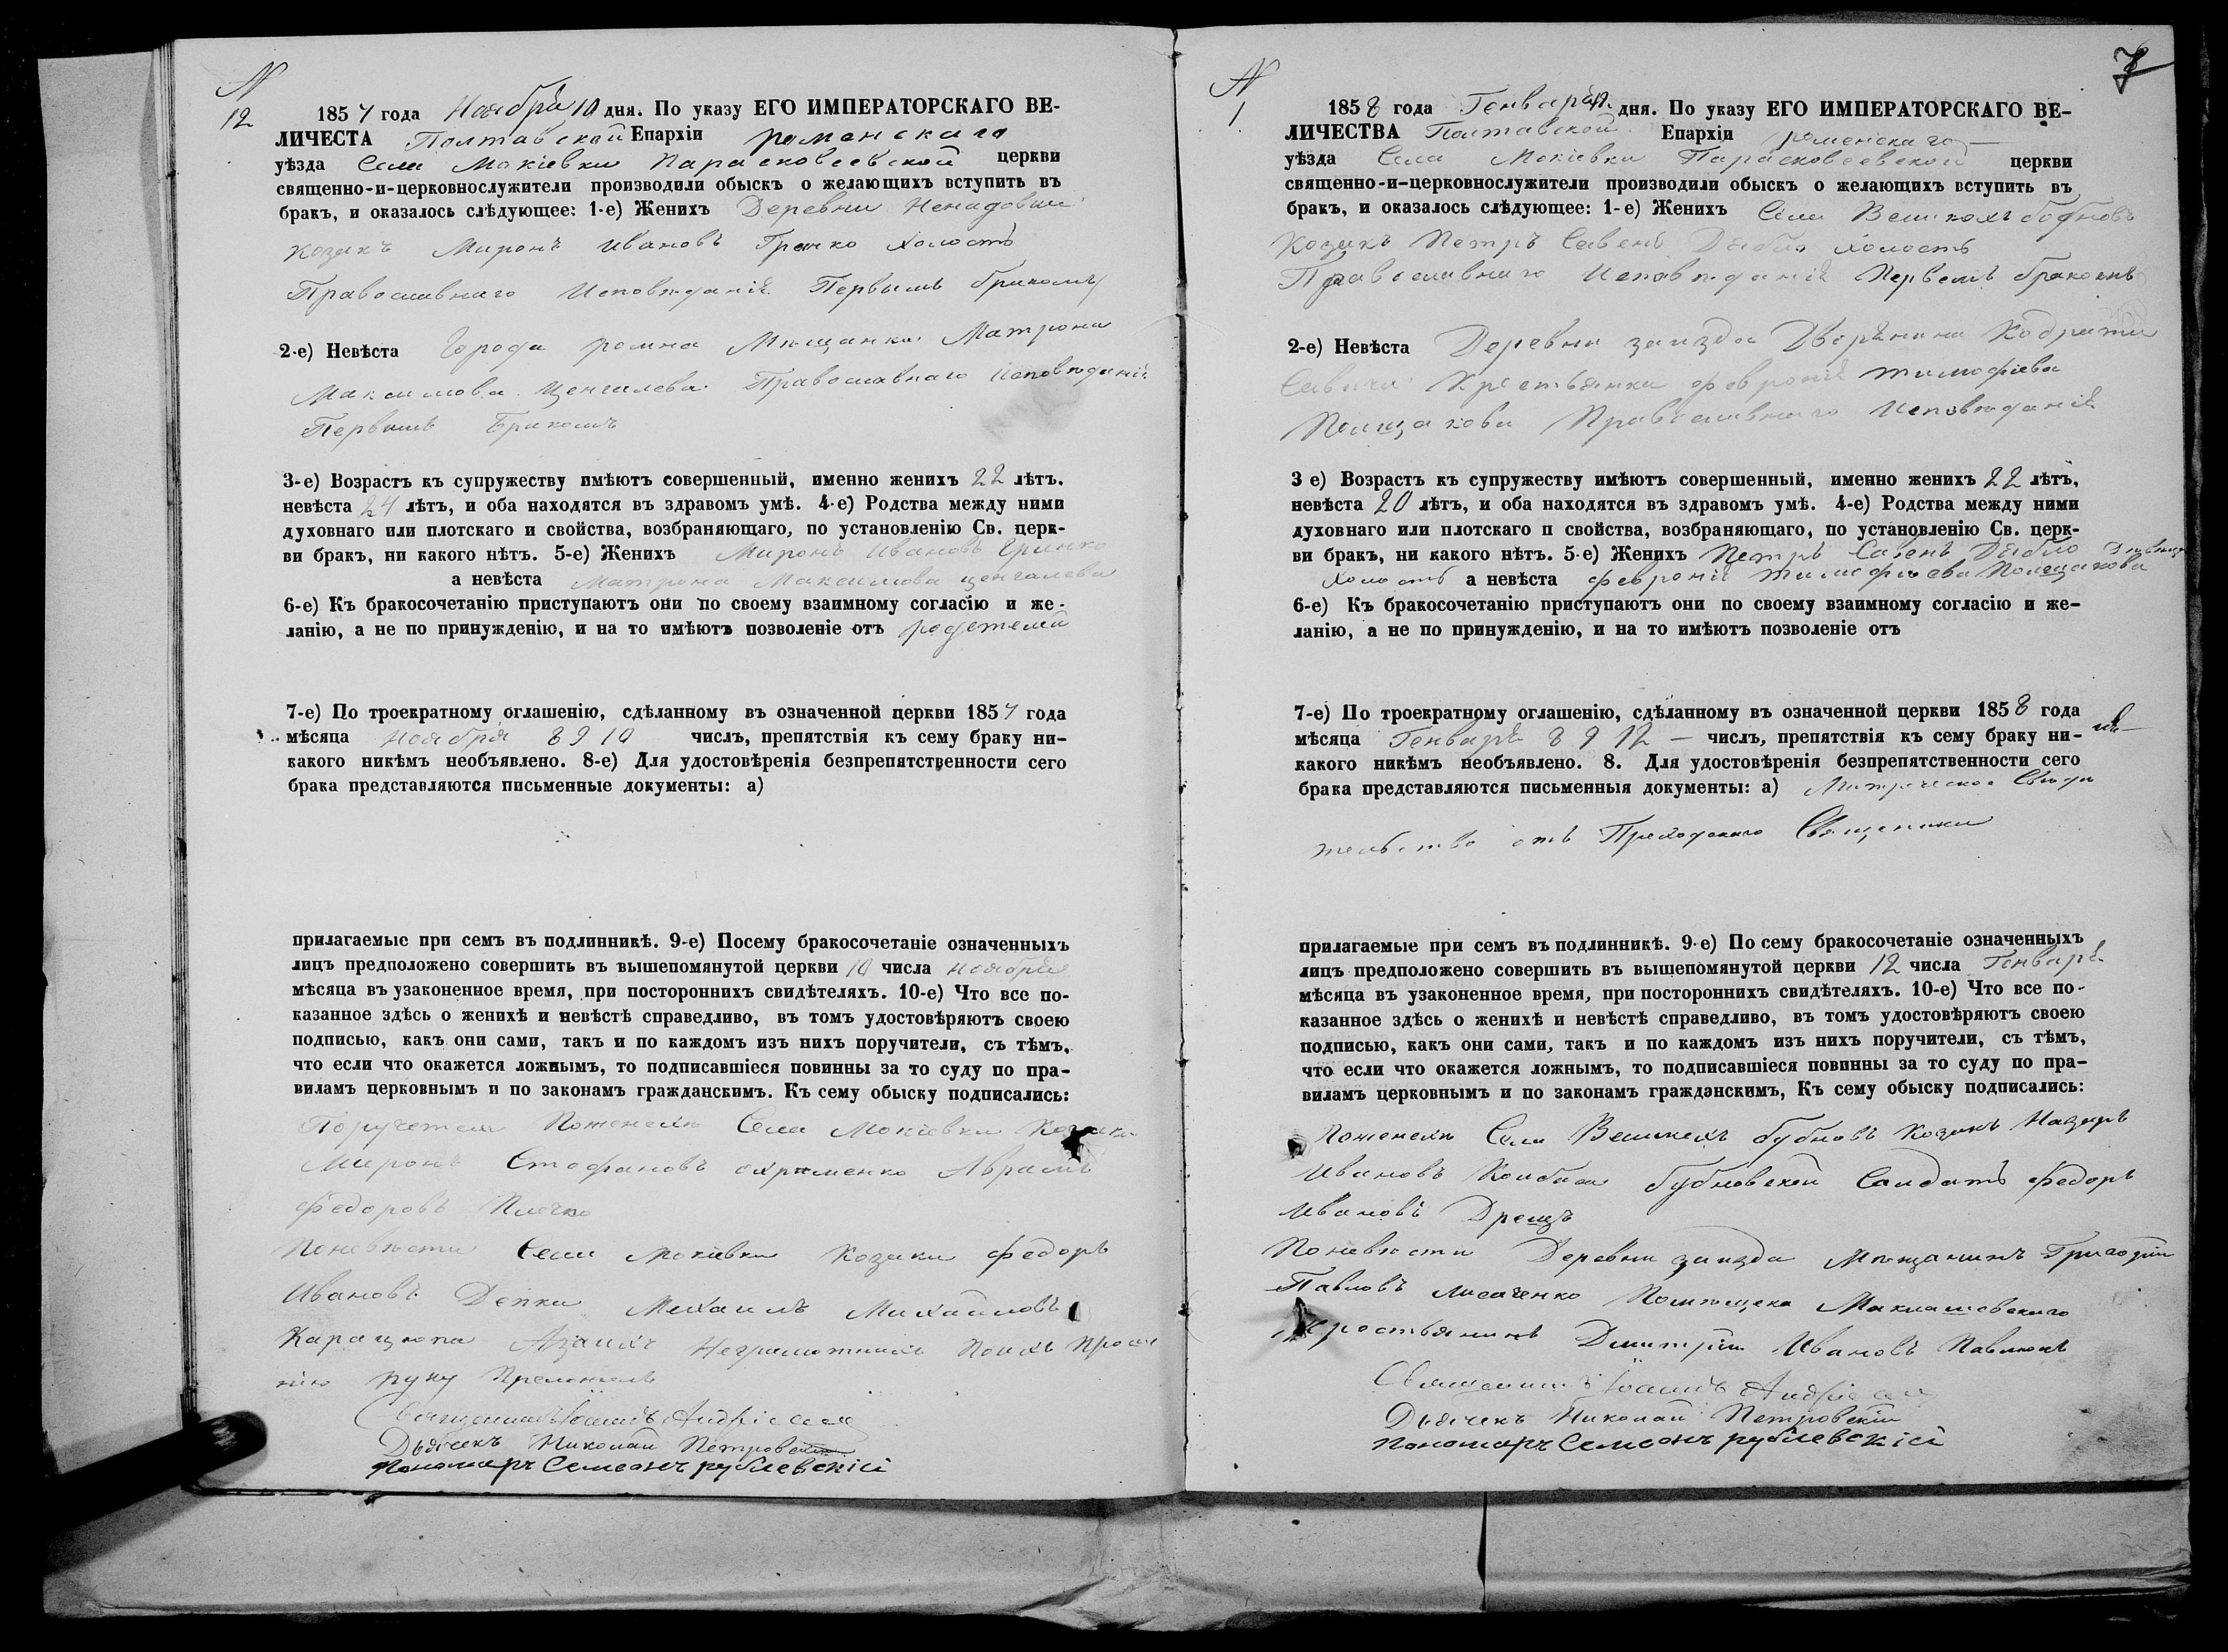 N
12
1857 года Ноября 10 дня. По указу ЕГО ИМПЕРАТОРСКАГО ВЕ-
ЛИЧЕСТА Полтавской Епархіи роменскаго
уѣзда Села Мокіевки Парасковеевской церкви
священно-и-церковнослужители производили обыскъ о желающихъ вступить въ
бракъ, и оказалось слѣдующее: 1-е) Женихъ Деревни
козакъ Миронъ Ивановъ Гринко холостъ
Православнаго Исповѣданія Первымъ бракомъ
2-е) Невѣста Города ромна Мѣщанка Матрона
Максимова Ценгалева Православнаго Исповѣданія
Первымъ Бракомъ
3-е) Возрастъ къ супружеству имѣютъ совершенный, именно женихъ 22 лѣтъ.
невѣста 24 лѣтъ, и оба находятся въ здравомъ умѣ. 4-е) Родства между ними
духовнаго или плотскаго и свойства, возбраняющаго, по установленію Св. церк-
ви бракъ, ни какого нѣтъ. 5-е) Женихъ Миронъ Ивановъ Гринко
а невѣста Матрона Максимова ценгалева
6-е) Къ бракосочетанію приступаютъ они по своему взаимному согласію и же-
ланію, а не по принужденію, и на то имѣютъ позволеніе отъ родетелей
7-е) По троекратному оглашенію, сдѣланному въ означенной церкви 1857 года
мѣсяца Ноября 8 9 10 числъ, препятствія къ сему браку ни-
какого никѣмъ необъявлено. 8-е) Для удостовѣренія безпрепятственности сего
брака представляются письменные документы: а)
прилагаемые при семъ въ подлинникѣ. 9-е) Посему бракосочетаніе означенныхъ
лицъ предположено совершить въ вышепомянутой церкви 10 числа ноября
мѣсяца въ узаконенное время, при постороннихъ свидѣтеляхъ. 10-е) Что все по-
казанное здѣсь о женихѣ и невѣстѣ справедливо, въ томъ удостовѣряютъ своею
подписью, какъ они сами, такъ и по каждомъ изъ нихъ поручители, съ тѣмъ,
что если что окажется ложнымъ, то подписавшіеся повинны за то суду по пра-
виламъ церковнымъ и по законамъ гражданскимъ. Къ сему обыску подписались:
Поручетели Поженехи Села Мокіевки Козаки
Миронъ Стефановъ охрименко Аврамъ
Федоровъ Плечко
Поневѣсти Села мокіевки Козаки Федоръ
Ивановъ Депка Михаилъ Михайловъ
Карацюпа Азаихъ Неграмотнихъ Поихъ Проше
нію руку Преложилъ
Священникъ Іоаннъ
Дьячекъ Николай Петровскій
Пономаръ Семеонъ рублевскій
7
N
1
1858 года Генваря 12 дня. По указу ЕГО ИМПЕРАТОРСКАГО ВЕ-
ЛИЧЕСТВА Полтавской Епархіи роменскаго
уѣзда Села Мокіевки Парасковеевской церкви
священно-и-церковнослужители производили обыскъ о желающихъ вступить въ
бракъ, и оказалось слѣдующее: 1-е) Женихъ Села Великихъ бубновъ
Козакъ Петръ Савенъ холостъ
Православнаго Исповѣданія Первемъ бракомъ
2-е) Невѣста Деревни заизда Дворѣнина Кодрата
Савича Крестьянка февронія тимофіева
Полщакова Православнаго Исповѣданія
3 е) Возрастъ къ супружеству имѣютъ совершенный, именно женихъ 22 лѣтъ,
невѣста 20 лѣтъ, и оба находятся въ здравомъ умѣ. 4-е) Родства между ними
духовнаго или плотскаго п свойства, возбраняющаго, по установленію Св. церк-
ви бракъ, ни какого нѣтъ. 5-е) Женихъ Петръ Савенъ
холостъ а невѣста февронія тимофѣева Полщакова
6-е) Къ бракосочетанію приступаютъ они по своему взаимному согласію и же-
ланію, а не по принужденію, и на то имѣютъ позволеніе отъ
7-е) По троекратному оглашенію, сдѣланному въ означенной церкви 1858 года
мѣсяца Генваря 8 9 12 — числъ, препятствія къ сему браку ни-
какого никѣмъ необъявлено. 8. Для удостовѣренія безпрепятственности сего
брака представляются письменныя документы: а) Метрическое Свиде
тельство отъ Преходскаго Священика
прилагаемые при семъ въ подлинникѣ. 9-е) По сему бракосочетаніе означенныхъ
лицъ предположено совершить въ вышепомянутой церкви 12 числа Генваря
мѣсяца въ узаконенное время, при постороннихъ свидѣтеляхъ. 10-е) Что все по-
казанное здѣсь о женихѣ и невѣстѣ справедливо, въ томъ удостовѣряютъ своею
подписью, какъ они сами, такъ и по каждомъ изъ нихъ поручители, съ тѣмъ,
что если что окажется ложнымъ, то подписавшіеся повинны за то суду по пра-
виламъ церковнымъ и по законамъ гражданскимъ, Къ сему обыску подписались:
Поженехи Села Великехъ бубновъ Козакъ Назаръ
Ивановъ Колбаса бубновскій Салдатъ Федоръ
Ивановъ Дрещъ
Поневѣсти Деревни заизда Мѣщанинъ Григорій
Павловъ Лисаченко Помѣщека Маклашевскаго
крестьянинъ Дмитрій Ивановъ Павлюкъ
Священникъ Іоаннъ
Дьячекъ Николай Петровскій
Пономаръ Семеонъ рублевскій